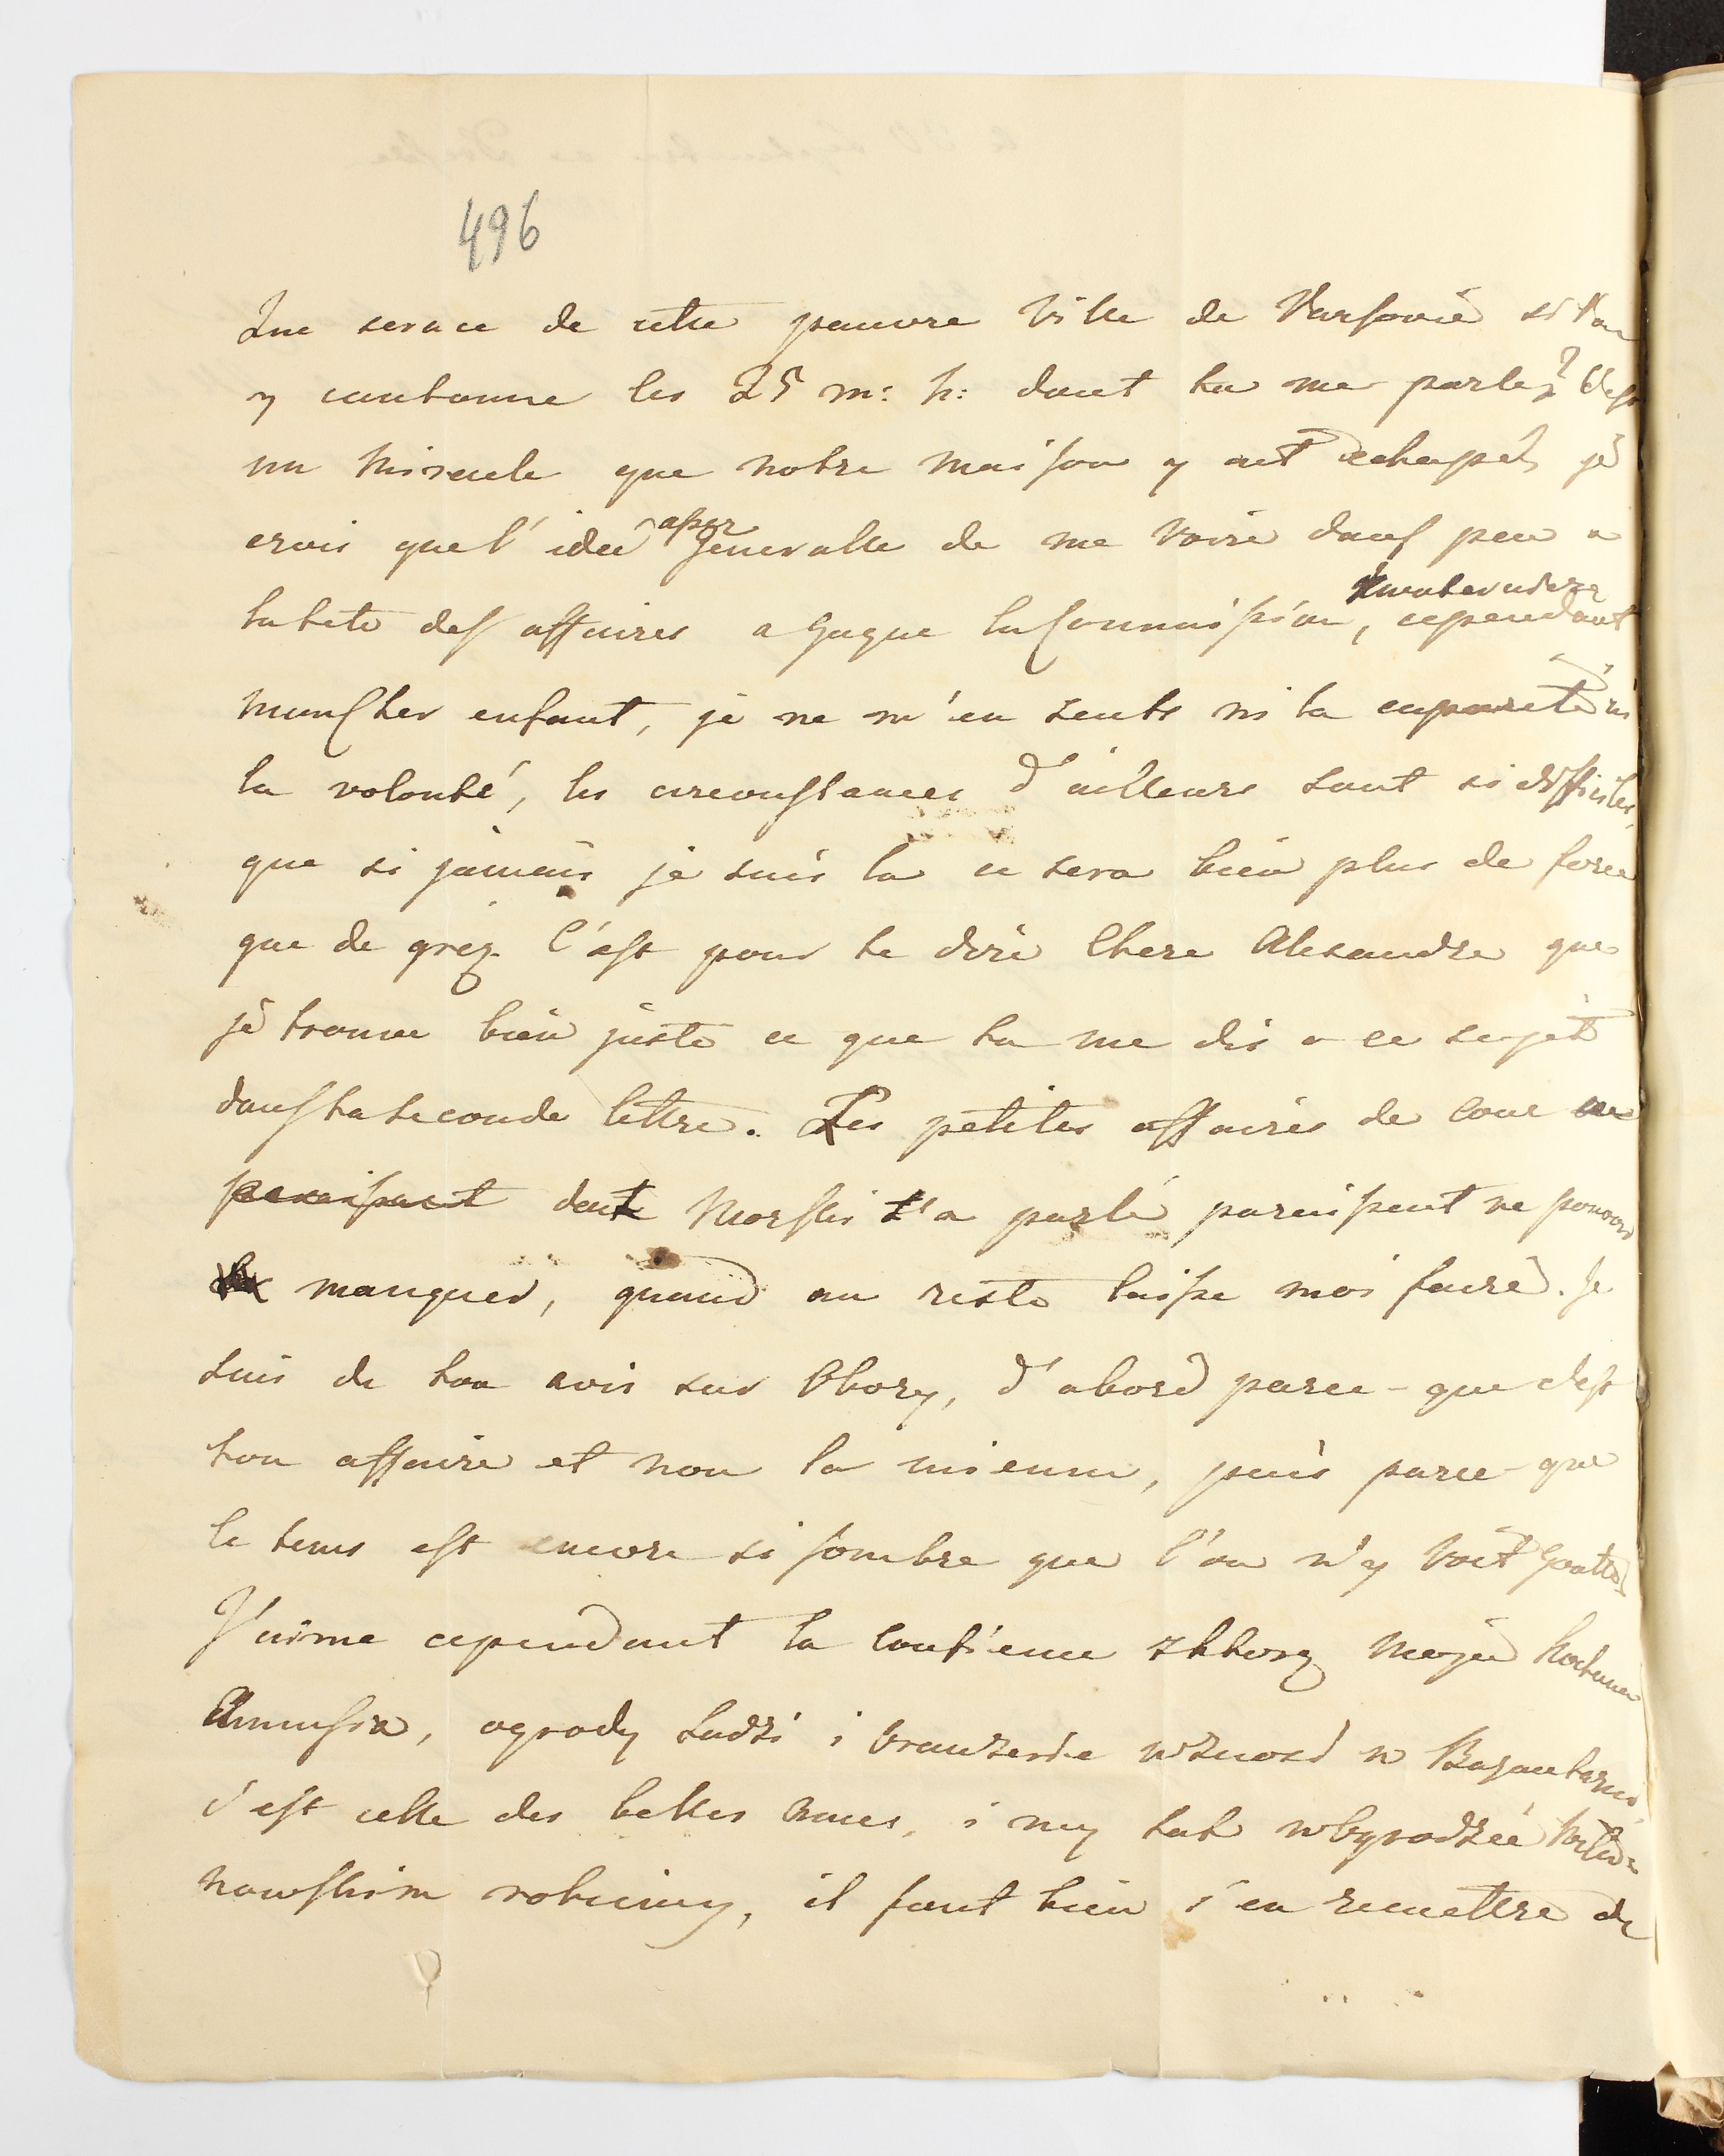 496
Que sera ce de cette pauvre Ville de Varsovie si l'on
y cantonne les 25 m: h: dont tu me parlez? C'est
un Miracle que notre maison y ait echapé, je
crois que l'idée assez généralle de me voire dans peu a
la tete des affaires a gagné la Commission,
cependant
mon cher enfant, je ne m'en sents ni la capacité ni
la volonté, les circonstances d'ailleurs sont si difficiles,
que si jamais je suis la ce sera bien plus de force
que de grez. C'est pour te dire Chere Alexandre que
je trouve bien juste ce que tu me dis a ce sujet
dans ta seconde lettre. Les petites affaires de Cour ne
paraissent dont Morski t'a parlé paraissent ne pouvoir
manquer, quand au reste laisse moi faire. Je
suis de ton avis sur Obory, d'abord parce-que c'est
ton affaire et non la mienne, puis parce-que
le tems est encore si sombre que l'on n'y voit goutte
J'aime cependant ta confience z ktorą moja kochana
Anusia, ogrody sadzi i wznosi w Bazantarni,
c'est celle des belles ames, i my tak w ogrodzie
robiemy, il faut bien s'en remettre de